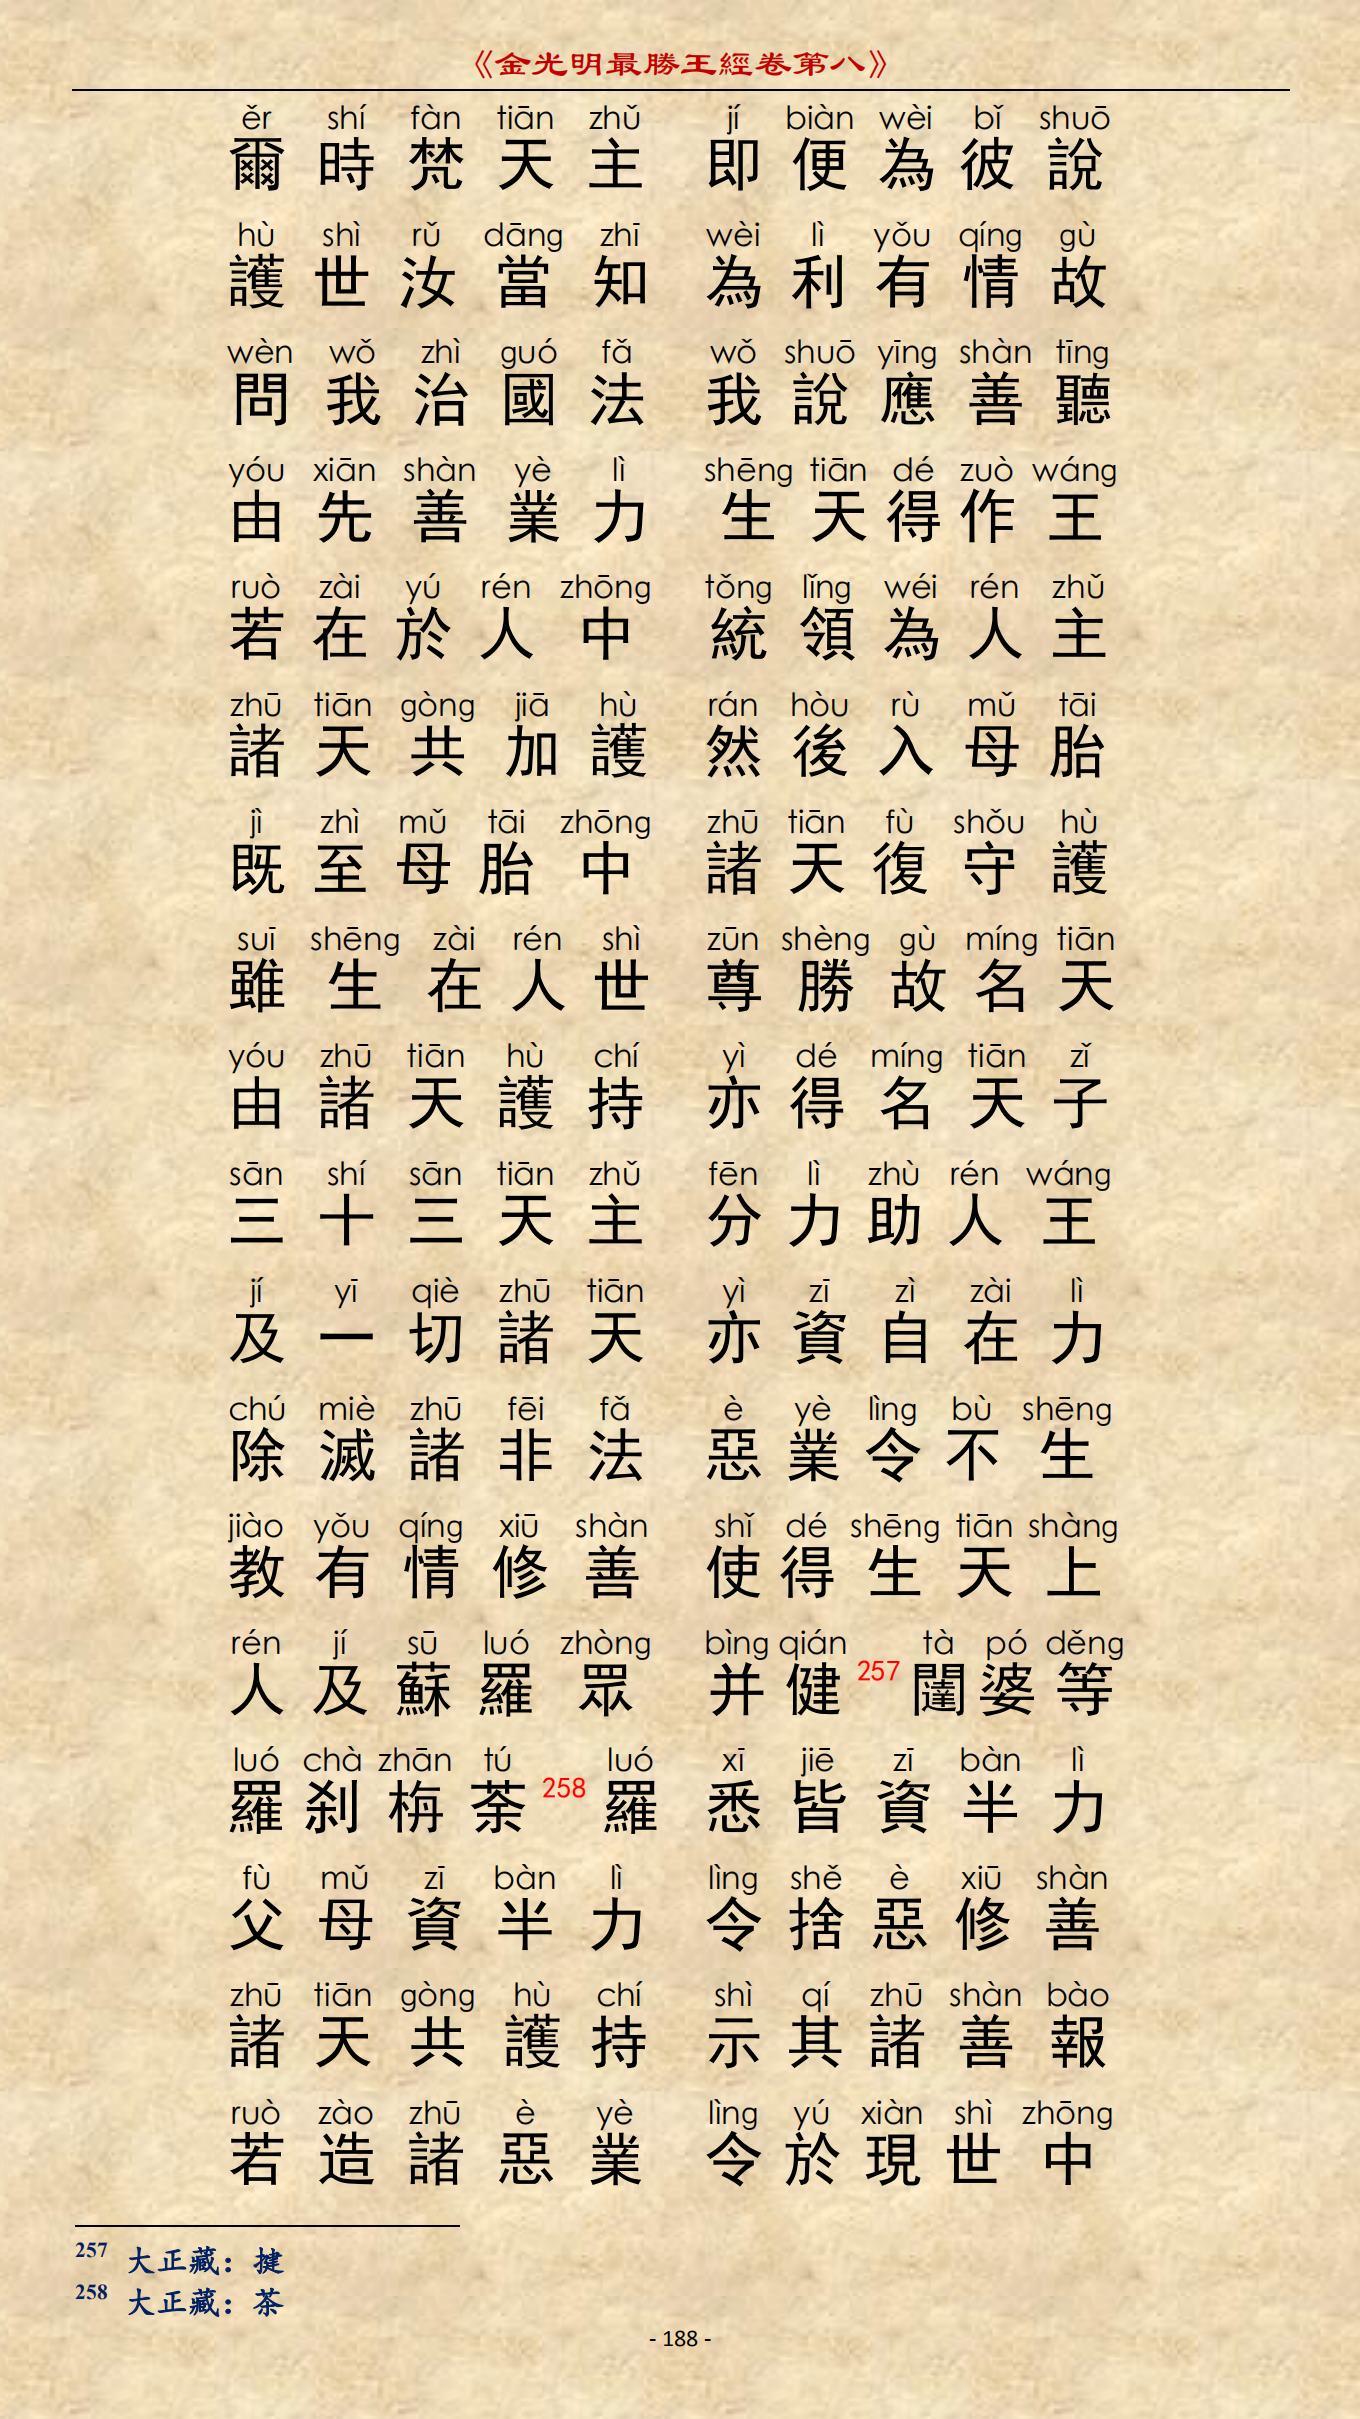 《金光明最勝王經卷第八》
ěr shí fàn tiān zhǔ jí biàn wèi bǐ shuō
爾時梵天主 即便為彼說
hù shì rǔ dāng zhī wèi lì yǒu qíng gù
護世汝當知 為利有情故
wèn wǒ zhì guó fǎ wǒ shuō yīng shàn tīng
問我治國法 我說應善聽
yóu xiān shàn yè lì shēng tiān dé zuò wáng
由先善業力 生天得作王
ruò zài yú rén zhōng tǒng lǐng wéi rén zhǔ
若在於人中 統領為人主
zhū tiān gòng jiā hù rán hòu rù mǔ tāi
諸天共加護 然後入母胎
jì zhì mǔ tāi zhōng zhū tiān fù shǒu hù
既至母胎中 諸天復守護
suī shēng zài rén shì zūn shèng gù míng tiān
雖生在人世 尊勝故名天
yóu zhū tiān hù chí yì dé míng tiān zǐ
由諸天護持 亦得名天子
sān shí sān tiān zhǔ fēn lì zhù rén wáng
三十三天主 分力助人王
jí yī qiè zhū tiān yì zī zì zài lì
及一切諸天 亦資自在力
chú miè zhū fēi fǎ è yè lìng bù shēng
除滅諸非法 惡業令不生
jiào yǒu qíng xiū shàn shǐ dé shēng tiān shàng
教有情修善 使得生天上
rén jí sū luó zhòng bìng qián tà pó děng
人及蘇羅眾 并健257闥婆等
luó chà zhān tú luó xī jiē zī bàn lì
羅剎栴荼258羅 悉皆資半力
fù mǔ zī bàn lì lìng shě è xiū shàn
父母資半力 令捨惡修善
zhū tiān gòng hù chí shì qí zhū shàn bào
諸天共護持 示其諸善報
ruò zào zhū è yè lìng yú xiàn shì zhōng
若造諸惡業 令於現世中
257 大正藏：揵
258 大正藏：茶
- 188 -